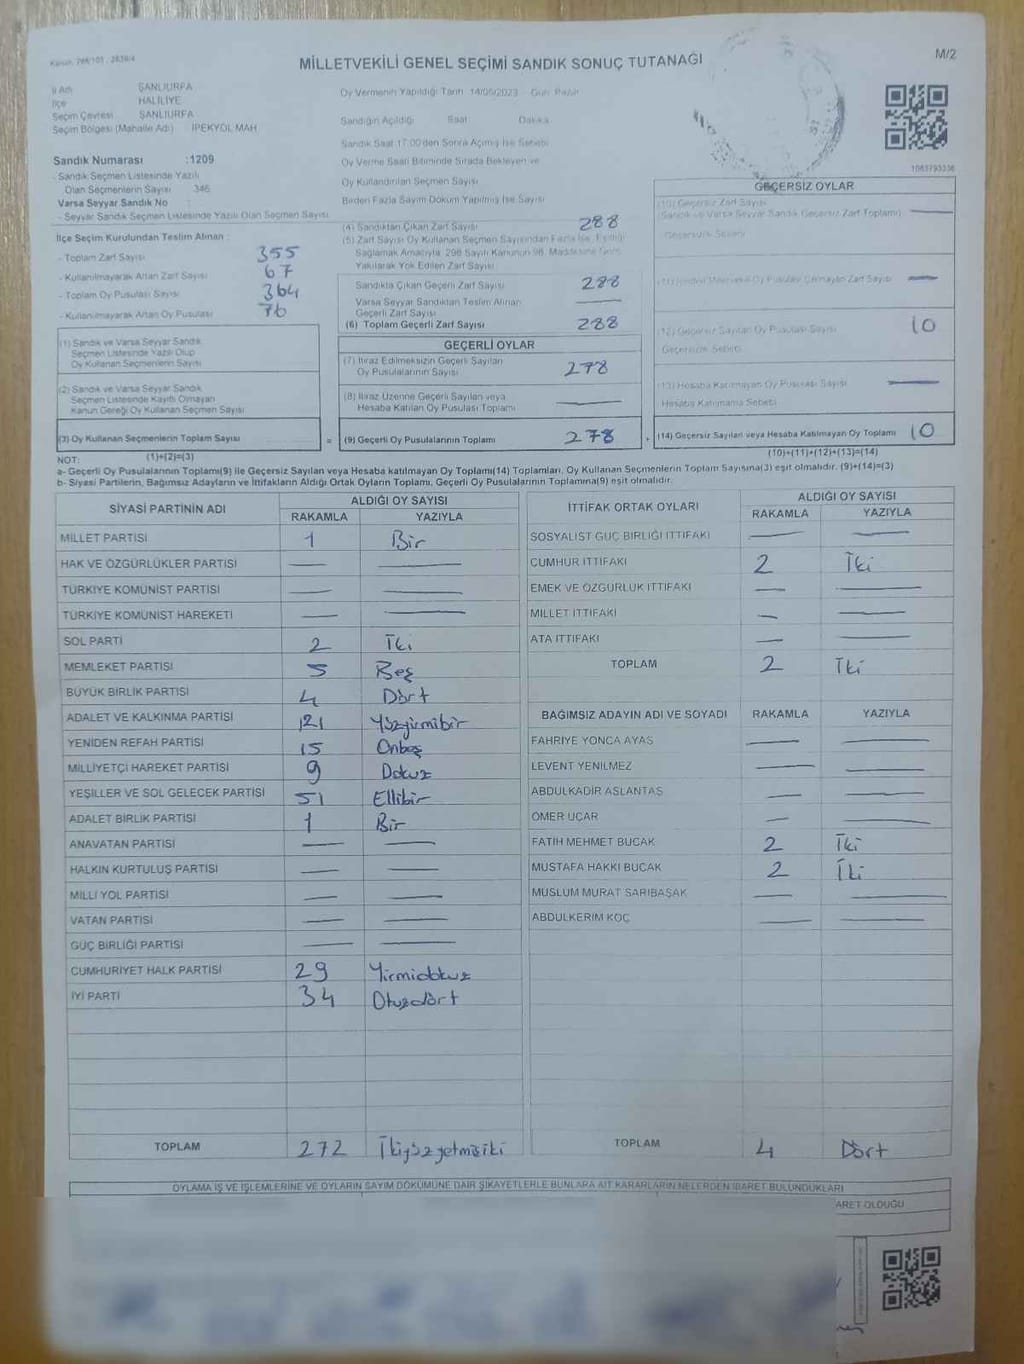 MİLLETVEKİLİ GENEL SEÇİMİ SANDIK SONUÇ TUTANAĞI
M/2
İl Adı ŞANLIURFA
İlçe HALİLİYE
Seçim Çevresi ŞANLIURFA
Seçim Bölgesi (Mahalle Adı) İPEKYOL MAH
Sandık Numarası :1209
- Sandık Seçmen Listesinde Yazılı
Olan Seçmenlerin Sayısı 346
Varsa Seyyar Sandık No
- Seyyar Sandık Seçmen Listesinde Yazılı Olan Seçmen Sayısı
İlçe Seçim Kurulundan Teslim Alınan :
- Toplam Zarf Sayısı 355
- Kullanılmayarak Artan Zarf Sayısı 67
- Toplam Oy Pusulası Sayısı 364
- Kullanılmayarak Artan Oy Pusulası 76
(1) Sandık ve Varsa Seyyar Sandık
Seçmen Listesinde Yazılı Olup
Oy Kullanan Seçmenlerin Sayısı
(2) Sandık ve Varsa Seyyar Sandık
Seçmen Listesinde Kayıtlı Olmayan
Kanun Gereği Oy Kullanan Seçmen Sayısı
(3) Oy Kullanan Seçmenlerin Toplam Sayısı
(1)+(2)=(3)
Oy Vermenin Yapıldığı Tarih 14/05/2023 Gün Pazar
Sandığın Açıldığı Saat Dakika
Sandık Saat 17:00'den Sonra Açılmış İse Sebebi
Oy Verme Saati Bitiminde Sırada Bekleyen ve
Oy Kullandırılan Seçmen Sayısı
Birden Fazla Sayım Döküm Yapılmış İse Sayısı
(4) Sandıktan Çıkan Zarf Sayısı 288
(5) Zarf Sayısı Oy Kullanan Seçmen Sayısından Fazla İse, Eşitliği
Sağlamak Amacıyla, 298 Sayılı Kanunun 98. Maddesine Göre
Yakılarak Yok Edilen Zarf Sayısı
Sandıkta Çıkan Geçerli Zarf Sayısı 288
Varsa Seyyar Sandıktan Teslim Alınan
Geçerli Zarf Sayısı
(6) Toplam Geçerli Zarf Sayısı 288
GEÇERLİ OYLAR
(7) İtiraz Edilmeksizin Geçerli Sayılan
Oy Pusulalarının Sayısı 278
(8) İtiraz Üzerine Geçerli Sayılan veya
Hesaba Katılan Oy Pusulası Toplamı
= (9) Geçerli Oy Pusulalarının Toplamı 278
1083793336
GEÇERSİZ OYLAR
(10) Geçersiz Zarf Sayısı
(Sandık ve Varsa Seyyar Sandık Geçersiz Zarf Toplamı)
Geçersizlik Sebebi
Oy Pusulası Çıkmayan Zarf Sayısı
(12) Geçersiz Sayılan Oy Pusulası Sayısı 10
Geçersizlik Sebebi
(13) Hesaba Katılmayan Oy Pusulası Sayısı
Hesaba Katılmama Sebebi
+ (14) Geçersiz Sayılan veya Hesaba Katılmayan Oy Toplamı 10
(10)+(11)+(12)+(13)=(14)
NOT:
a- Geçerli Oy Pusulalarının Toplamı(9) ile Geçersiz Sayılan veya Hesaba katılmayan Oy Toplamı(14) Toplamları, Oy Kullanan Seçmenlerin Toplam Sayısına(3) eşit olmalıdır. (9)+(14)=(3)
b- Siyasi Partilerin, Bağımsız Adayların ve İttifakların Aldığı Ortak Oyların Toplamı, Geçerli Oy Pusulalarının Toplamına(9) eşit olmalıdır.
SİYASİ PARTİNİN ADI ALDIĞI OY SAYISI
RAKAMLA YAZIYLA
MİLLET PARTİSİ 1 Bir
HAK VE ÖZGÜRLÜKLER PARTİSİ
TÜRKİYE KOMÜNİST PARTİSİ
TÜRKİYE KOMÜNİST HAREKETİ
SOL PARTİ 2 İki
MEMLEKET PARTİSİ 5 Beş
BÜYÜK BİRLİK PARTİSİ 4 Dört
ADALET VE KALKINMA PARTİSİ 121 Yüzyirmibir
YENİDEN REFAH PARTİSİ 15 Onbeş
MİLLİYETÇİ HAREKET PARTİSİ 9 Dokuz
YEŞİLLER VE SOL GELECEK PARTİSİ 51 Ellibir
ADALET BİRLİK PARTİSİ 1 Bir
ANAVATAN PARTİSİ
HALKIN KURTULUŞ PARTİSİ
MİLLİ YOL PARTİSİ
VATAN PARTİSİ
GÜÇ BİRLİĞİ PARTİSİ
CUMHURİYET HALK PARTİSİ 29 Yirmidokuz
İYİ PARTİ 34 Otuzdört
TOPLAM 272 İkiyüzyetmişiki
İTTİFAK ORTAK OYLARI ALDIĞI OY SAYISI
RAKAMLA YAZIYLA
SOSYALİST GÜÇ BİRLİĞİ İTTİFAKI
CUMHUR İTTİFAKI 2 İki
EMEK VE ÖZGÜRLÜK İTTİFAKI
MİLLET İTTİFAKI
ATA İTTİFAKI
TOPLAM 2 İki
BAĞIMSIZ ADAYIN ADI VE SOYADI RAKAMLA YAZIYLA
FAHRİYE YONCA AYAS
LEVENT YENİLMEZ
ABDULKADİR ASLANTAŞ
ÖMER UÇAR
FATİH MEHMET BUCAK 2 İki
MUSTAFA HAKKI BUCAK 2 İki
MÜSLÜM MURAT SARIBAŞAK
ABDULKERİM KOÇ
TOPLAM 4 Dört
OYLAMA İŞ VE İŞLEMLERİNE VE OYLARIN SAYIM DÖKÜMÜNE DAİR ŞİKAYETLERLE BUNLARA AİT KARARLARIN NELERDEN İBARET BULUNDUKLARI
ARET OLDUĞU